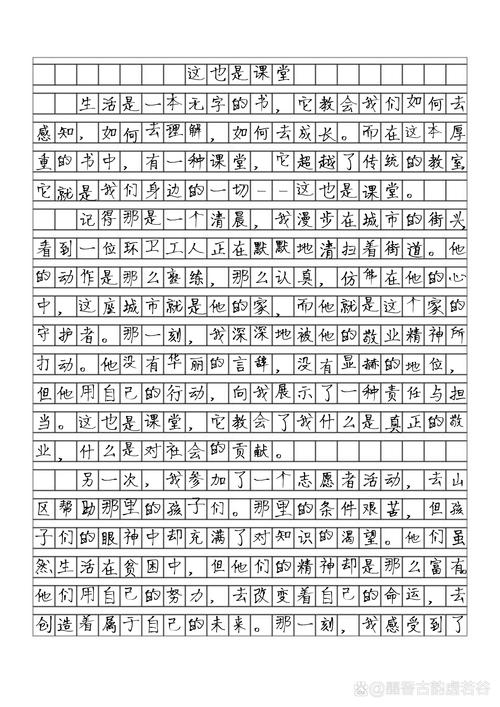 这也是课堂
生活是一本无字的书，它教会我们如何去
感知，如何去理解，如何去成长。而在这本厚
重的书中，有一种课堂，它超越了传统的教室
它就是我们身边的一切--这也是课堂。
记得那是一个清晨，我漫步在城市的街头
看到一位环卫工人正在默默地清扫着街道。他
的动作是那么熟练，那么认真，仿佛在他的心
中，这座城市就是他的家，而他就是这个家的
守护者。那一刻，我深深地被他的敬业精神所
打动。他没有华丽的言辞，没有显赫的地位，
但他用自己的行动，向我展示了一种责任与担
当。这也是课堂，它教会了我什么是真正的敬
业，什么是对社会的贡献。
另一次，我参加了一个志愿者活动，去山
区帮助那里的孩子们。那里的条件艰苦，但孩
子们的眼神中却充满了对知识的渴望。他们虽
然生活在贫困中，但他们的精神却是那么富有
他们用自己的努力，去改变着自己的命运，去
创造着属于自己的未来。那一刻，我感受到了